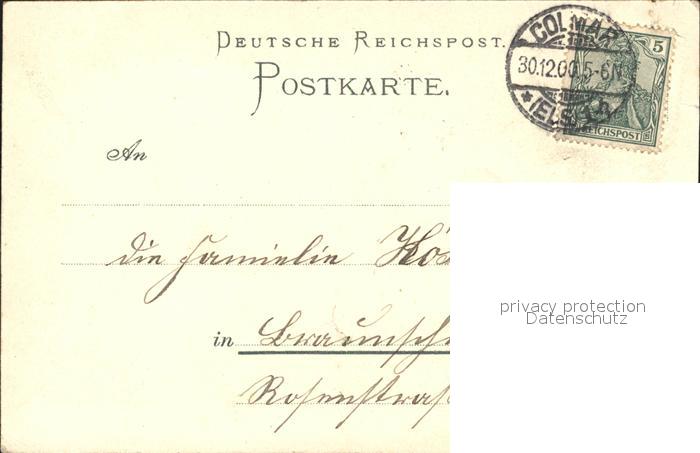 DEUTSCHE REICHSPOST.
POSTKARTE.
COLMAR
30.12.00 5-6N
5
REICHSPOST
An
die Familie
in Braunsch
Rosenstraß
privacy protection
Datenschutz